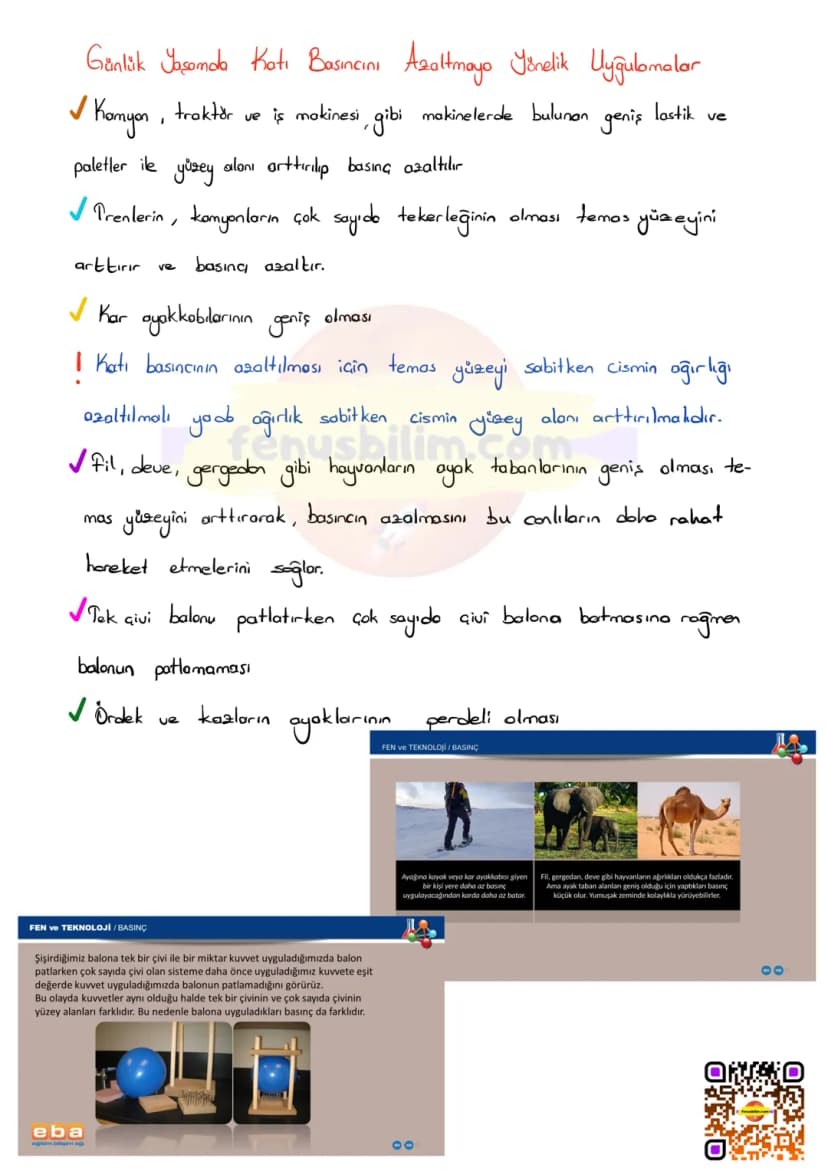 Günlük Yaşamda Katı Basıncını Azaltmaya Yönelik Uygulamalar
✓ Kamyon, traktör ve iş makinesi, gibi makinelerde bulunan geniş lastik ve
paletler ile yüzey alanı arttırılıp basınç azaltılır
✓ Trenlerin, kamyonların çok sayıda tekerleğinin olması temas yüzeyini
arttırır ve basıncı azaltır.
✓ Kar ayakkabılarının geniş olması
! Katı basıncının azaltılması için temas yüzeyi sabitken cismin ağırlığı
azaltılmalı yada ağırlık sabitken cismin yüzey alanı arttırılmalıdır.
fenusbilim.com
✓ Fil, deve, gergedan gibi hayvanların ayak tabanlarının geniş olması te-
mas yüzeyini arttırarak, basıncın azalmasını bu canlıların daha rahat
hareket etmelerini sağlar.
✓ Tek çivi balonu patlatırken çok sayıda çivi balona batmasına rağmen
balonun patlamaması
✓ Ördek ve kazların ayaklarının perdeli olması
FEN ve TEKNOLOJİ / BASINÇ
Ayağına kayak veya kar ayakkabısı giyen
bir kişi yere daha az basınç
uygulayacağından karda daha az batar.
Fil, gergedan, deve gibi hayvanların ağırlıkları oldukça fazladır.
Ama ayak taban alanları geniş olduğu için yaptıkları basınç
küçük olur. Yumuşak zeminde kolaylıkla yürüyebilirler.
FEN ve TEKNOLOJİ / BASINÇ
Şişirdiğimiz balona tek bir çivi ile bir miktar kuvvet uyguladığımızda balon
patlarken çok sayıda çivi olan sisteme daha önce uyguladığımız kuvvete eşit
değerde kuvvet uyguladığımızda balonun patlamadığını görürüz.
Bu olayda kuvvetler aynı olduğu halde tek bir çivinin ve çok sayıda çivinin
yüzey alanları farklıdır. Bu nedenle balona uyguladıkları basınç da farklıdır.
eba
eğitim bilişim ağı
fenusbilim.com